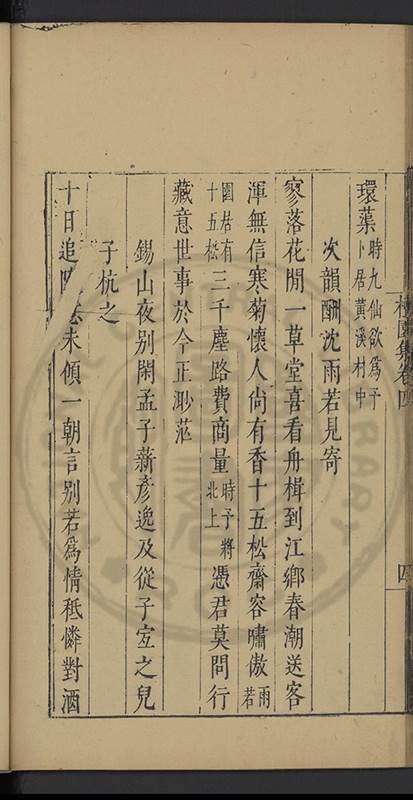 環藥時九仙欲為予卜居黃溪村中
次韻酬沈雨若見寄
寥落花閒一草堂喜看舟楫到江鄉春潮送客
渾無信寒菊懷人尚有香十五松齋容嘯傲雨若
園居有十五松三千塵路費商量時予將北上憑君莫問行
藏意世事於今正渺茫
錫山夜別閑孟子薪彥逸及從子宏之兒
子杭之
十日追 未傾一朝言別若為情秪憐對酒
集卷四
四